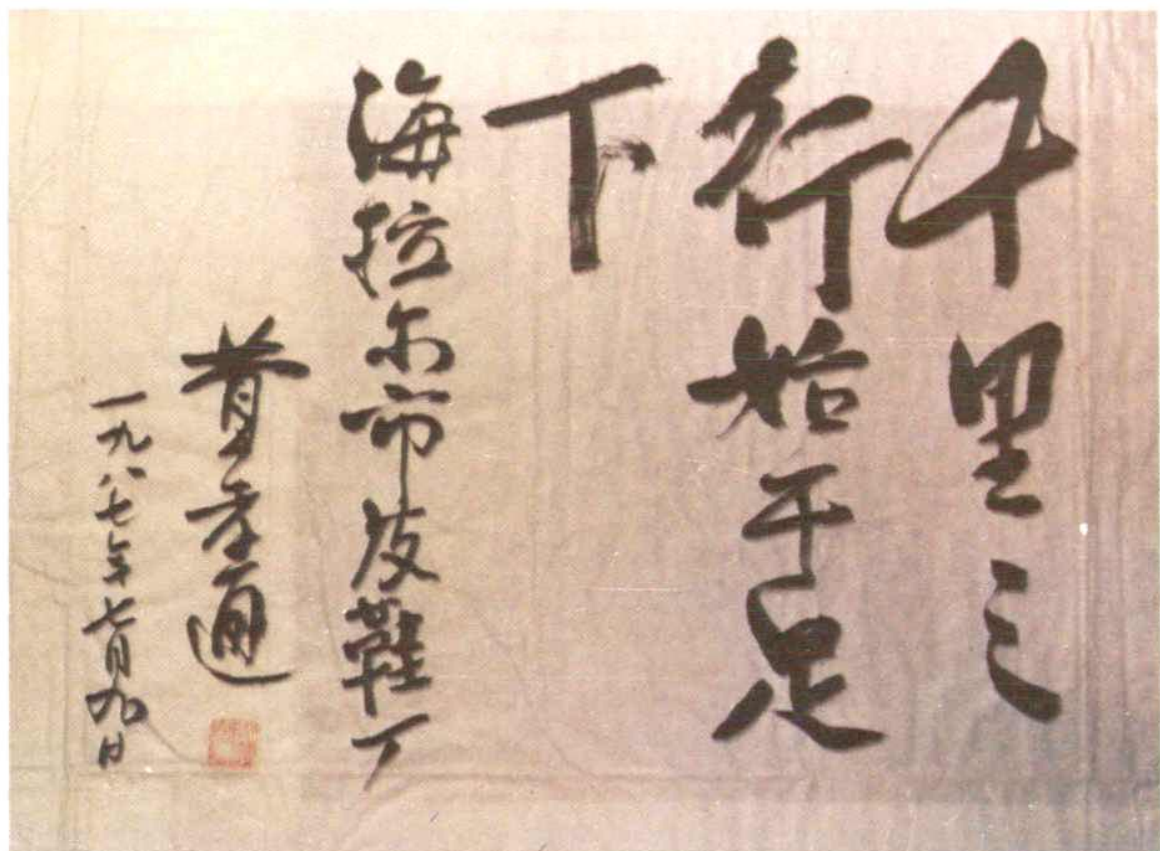 千里之
行始于足
下
海拉尔市皮鞋厂
费孝通
一九八七年七月九日